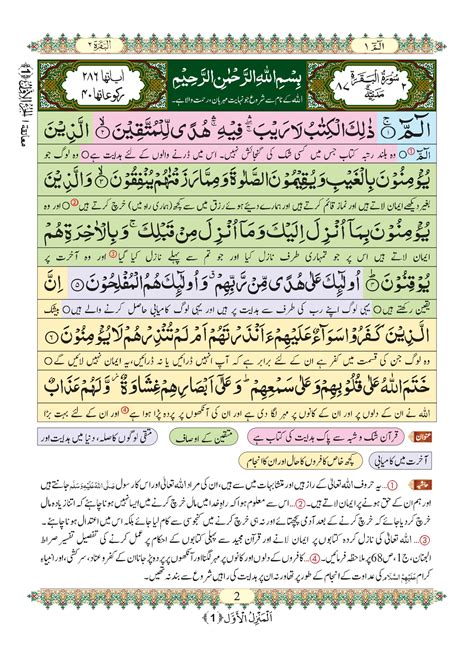 الٓمّٓ ١
البقرۃ ٢
سُوْرَۃُ الْبَقَرَۃِ مَدَنِيَّۃٌ ٢ ٨٧
بِسْمِ اللّٰہِ الرَّحْمٰنِ الرَّحِیْمِ
اللہ کے نام سے شروع جو نہایت مہربان، رحمت والا ہے۔
اٰیاتھا ٢٨٦
رکوعاتھا ٤٠
الٓمّٓ ۚ﴿۱﴾ ذٰلِکَ الْکِتٰبُ لَا رَیْبَ ۚۖۛ فِیْہِ ۚۛ ہُدًی لِّلْمُتَّقِیْنَ ۙ﴿۲﴾ الَّذِیْنَ
الٓمّٓ ① وہ بلند رتبہ کتاب جس میں کسی شک کی گنجائش نہیں۔ اس میں ڈرنے والوں کے لئے ہدایت ہے وہ لوگ جو
یُؤْمِنُوْنَ بِالْغَیْبِ وَیُقِیْمُوْنَ الصَّلٰوۃَ وَمِمَّا رَزَقْنٰہُمْ یُنْفِقُوْنَ ۙ﴿۳﴾ وَالَّذِیْنَ
بغیر دیکھے ایمان لاتے ہیں اور نماز قائم کرتے ہیں اور ہمارے دیئے ہوئے رزق میں سے کچھ (ہماری راہ میں) خرچ کرتے ہیں ② اور وہ
یُؤْمِنُوْنَ بِمَاۤ اُنْزِلَ اِلَیْکَ وَمَاۤ اُنْزِلَ مِنْ قَبْلِکَ ۚ وَبِالْاٰخِرَۃِ ہُمْ
ایمان لاتے ہیں اس پر جو تمہاری طرف نازل کیا اور جو تم سے پہلے نازل کیا گیا ③ اور وہ آخرت پر
یُوْقِنُوْنَ ؕ﴿۴﴾ اُولٰٓئِکَ عَلٰی ہُدًی مِّنْ رَّبِّہِمْ ٭ وَاُولٰٓئِکَ ہُمُ الْمُفْلِحُوْنَ ﴿۵﴾ اِنَّ
یقین رکھتے ہیں یہی لوگ اپنے رب کی طرف سے ہدایت پر ہیں اور یہی لوگ کامیابی حاصل کرنے والے ہیں بیشک
الَّذِیْنَ کَفَرُوْا سَوَآءٌ عَلَیْہِمْ ءَاَنْذَرْتَہُمْ اَمْ لَمْ تُنْذِرْہُمْ لَا یُؤْمِنُوْنَ ﴿۶﴾
وہ لوگ جن کی قسمت میں کفر ہے ان کے لئے برابر ہے کہ آپ انہیں ڈرائیں یا نہ ڈرائیں، یہ ایمان نہیں لائیں گے
خَتَمَ اللّٰہُ عَلٰی قُلُوْبِہِمْ وَعَلٰی سَمْعِہِمْ ؕ وَعَلٰۤی اَبْصَارِہِمْ غِشَاوَۃٌ ۫ وَّلَہُمْ عَذَابٌ
اللہ نے ان کے دلوں پر اور ان کے کانوں پر مہر لگا دی ہے اور ان کی آنکھوں پر پردہ پڑا ہوا ہے ④ اور ان کے لئے بہت بڑا
عنوان قرآن شک و شبہ سے پاک ہدایت کی کتاب ہے متقین کے اوصاف متقی لوگوں کا صلہ، دنیا میں ہدایت اور
آخرت میں کامیابی کچھ خاص کافروں کا حال اور ان کا انجام
حاشیہ ①... یہ حروف اللہ تعالٰی کے راز ہیں اور متشابہات میں سے ہیں، ان کی مراد اللہ تعالٰی اور اس کا رسول صلی اللہ علیہ وسلم جانتے ہیں
اور ہم ان کے حق ہونے پر ایمان لاتے ہیں۔ ②... اس سے معلوم ہوا کہ راہِ خدا میں مال خرچ کرنے میں ایسا نہیں ہونا چاہئے کہ اتنا زیادہ مال
خرچ کر دیا جائے کہ خرچ کرنے کے بعد آدمی پچھتائے اور نہ ہی خرچ کرنے میں کنجوسی سے کام لیا جائے بلکہ اس میں اعتدال ہونا چاہئے۔
③... اللہ تعالٰی کی نازل کردہ تمام کتابوں پر ایمان لانے اور قرآن مجید سے پہلے کی کتابوں کے احکام پر عمل کرنے کی تفصیل تفسیر صراط
الجنان، ج1، ص68 پر ملاحظہ فرمائیں۔ ④... کافروں کے دلوں اور کانوں پر مہر لگنا اور آنکھوں پر پردہ پڑ جانا ان کے کفر و عناد، سرکشی، اور انبیاءِ
کرام علیہم السلام کی عداوت کے انجام کے طور پر تھا ورنہ ان پر ہدایت کی راہیں شروع سے بند نہ تھیں۔
2
اَلْمَنْزِلُ الْاَوَّلُ ﴿1﴾